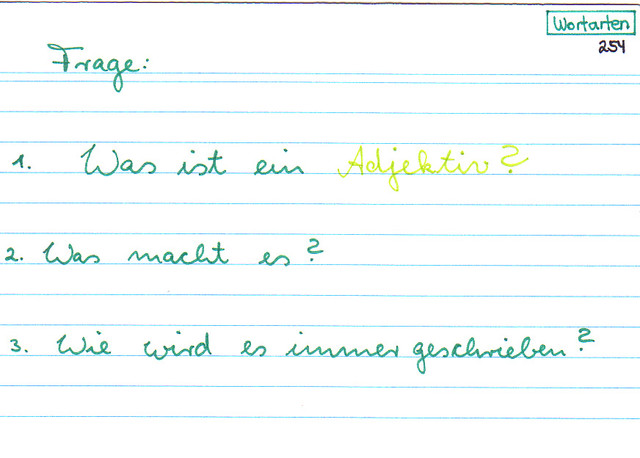 Wortarten
254
Frage:
1. Was ist ein Adjektiv?
2. Was macht es?
3. Wie wird es immer geschrieben?